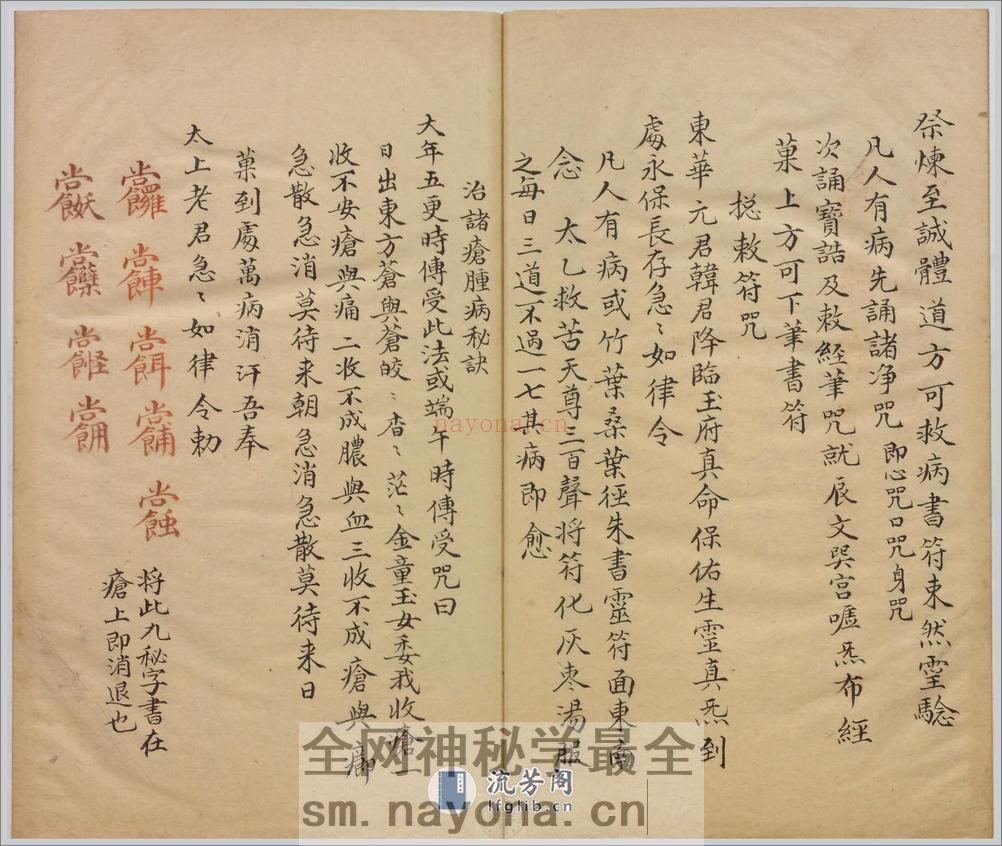 祭煉至誠體道方可救病書符自然霛驗
凡人有病先誦諸净咒即心咒口咒身咒
次誦寶誥及敕經筆咒就辰文巽宫噓炁布經
菓上方可下筆書符
捴敕符咒
東華元君韓君降臨玉府真命保佑生靈真炁到
處永保長存急〻如律令
凡人有病或竹葉桑葉徑朱書靈符面東南
念 太乙救苦天尊三百聲將符化灰枣湯服
之每日三道不過一七其病即愈
治諸瘡腫病秘訣
大年五更時傳受此法或端午時傳受咒曰
日出東方蒼與蒼皎〻杳〻茫〻金童玉女委我收瘡一
收不安瘡與痛二收不成膿與血三收不成瘡與癤
急散急消莫待来朝急消急散莫待来日
菓到處萬病消汙吾奉
太上老君急〻如律令勅
将此九秘字書在
瘡上即消退也
nayona.cn
全网神秘学最全
流芳阁
lfglib.cn
sm.nayona.cn